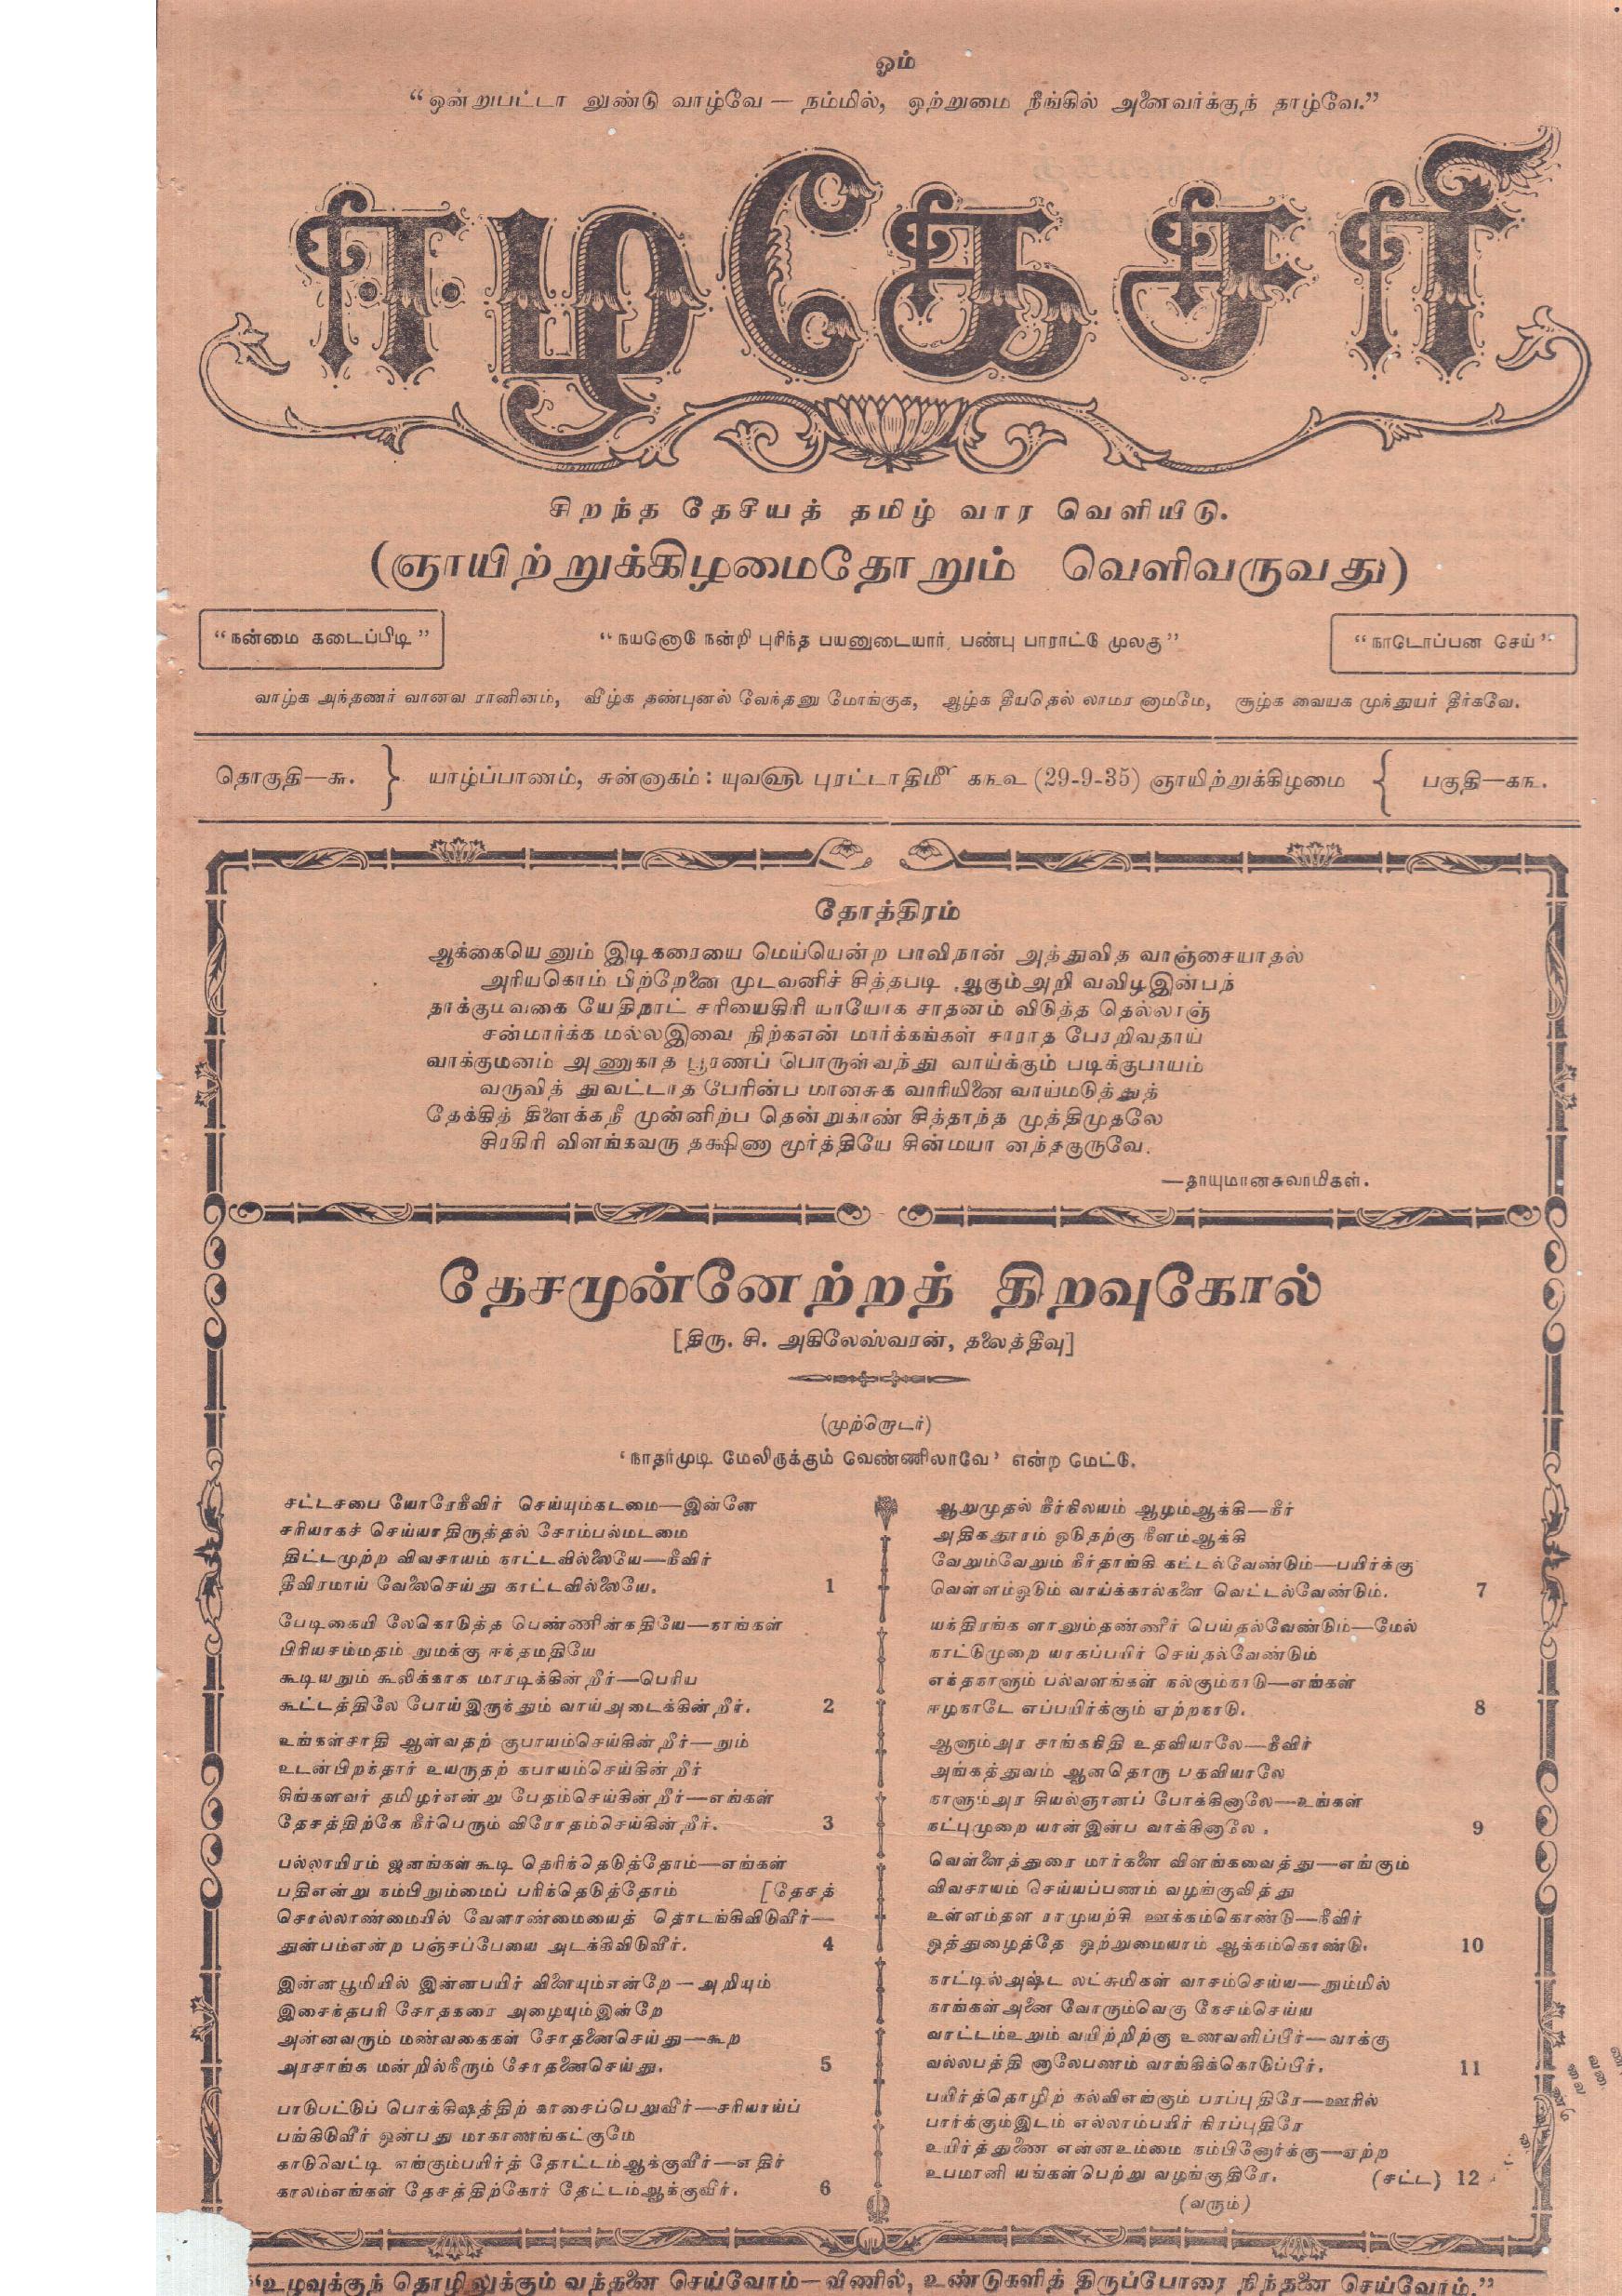 ஓம்
“ஒன்றுபட்டா லுண்டு வாழ்வே — நம்மில், ஒற்றுமை நீங்கில் அனைவர்க்குந் தாழ்வே.”
ஈழகேசரி
சிறந்த தேசீயத் தமிழ் வார வெளியீடு.
(ஞாயிற்றுக்கிழமைதோறும் வெளிவருவது)
“நன்மை கடைப்பிடி”
“நயனோடு நன்றி புரிந்த பயனுடையார் பண்பு பாராட்டு முலகு”
“நாடொப்பன செய்”
வாழ்க அந்தணர் வானவ ரானினம், வீழ்க தண்புனல் வேந்தனு மோங்குக, ஆழ்க தீயதெல் லாமர னாமமே, சூழ்க வையக முந்துயர் தீர்கவே.
தொகுதி—௬.
யாழ்ப்பாணம், சுன்னாகம் : யுவ௵ புரட்டாதி௴ ௧௩௨ (29-9-35) ஞாயிற்றுக்கிழமை
பகுதி—௧௩.
தோத்திரம்
ஆக்கையெனும் இடிகரையை மெய்யென்ற பாவிநான் அத்துவித வாஞ்சையாதல்
அரியகொம் பிற்றேனை முடவனிச் சித்தபடி ஆகும்அறி வவிழஇன்பந்
தாக்கும்வகை யேதிநாட் சரியைகிரி யாயோக சாதனம் விடுத்த தெல்லாஞ்
சன்மார்க்க மல்லஇவை நிற்கஎன் மார்க்கங்கள் சாராத பேரறிவதாய்
வாக்குமனம் அணுகாத பூரணப் பொருள்வந்து வாய்க்கும் படிக்குபாயம்
வருவித் துவட்டாத பேரின்ப மானசுக வாரியினை வாய்மடுத்துத்
தேக்கித் திளைக்கநீ முன்னிற்ப தென்றுகாண் சித்தாந்த முத்திமுதலே
சிரகிரி விளங்கவரு தக்ஷிணா மூர்த்தியே சின்மயா னந்தகுருவே.
—தாயுமானசுவாமிகள்.
தேசமுன்னேற்றத் திறவுகோல்
[திரு. சி. அகிலேஸ்வரன், தலைத்தீவு]
(முற்றொடர்)
‘நாதர்முடி மேலிருக்கும் வெண்ணிலாவே’ என்ற மெட்டு.
சட்டசபை யோரேநீவிர் செய்யும்கடமை—இன்னே
சரியாகச் செய்யாதிருத்தல் சோம்பல்மடமை
திட்டமுற்ற விவசாயம் நாட்டவில்லையே—நீவிர்
தீவிரமாய் வேலைசெய்து காட்டவில்லையே. 1
பேடிகையி லேகொடுத்த பெண்ணின்கதியே—நாங்கள்
பிரியசம்மதம் நுமக்கு ஈந்தமதியே
கூடியறும் கூலிக்காக மாரடிக்கின்றீர்—பெரிய
கூட்டத்திலே போய்இருந்தும் வாய்அடைக்கின்றீர். 2
உங்கள்சாதி ஆள்வதற் குபாயம்செய்கின்றீர்—நும்
உடன்பிறந்தார் உயருதற் கபாயம்செய்கின்றீர்
சிங்களவர் தமிழர்என்று பேதம்செய்கின்றீர்—எங்கள்
தேசத்திற்கே நீர்பெரும் விரோதம்செய்கின்றீர். 3
பல்லாயிரம் ஜனங்கள்கூடி தெரிந்தெடுத்தோம்—எங்கள்
பதிஎன்று நம்பிநும்மைப் பரிந்தெடுத்தோம் [தேசத்
சொல்லாண்மையில் வேளாண்மையைத் தொடங்கிவிடுவீர்—
துன்பம்என்ற பஞ்சப்பேயை அடக்கிவிடுவீர். 4
இன்னபூமியில் இன்னபயிர் விளையும்என்றே—அறியும்
இசைந்தபரி சோதகரை அழையும்இன்றே
அன்னவரும் மண்வகைகள் சோதனைசெய்து—கூற
அரசாங்க மன்றில்நீரும் சோதனைசெய்து. 5
பாடுபட்டுப் பொக்கிஷத்திற் காசைப்பெறுவீர்—சரியாய்ப்
பங்கிடுவீர் ஒன்பது மாகாணங்கட்குமே
காடுவெட்டி எங்கும்பயிர்த் தோட்டம்ஆக்குவீர்—எதிர்
காலம்எங்கள் தேசத்திற்கோர் தேட்டம்ஆக்குவீர். 6
ஆறுமுதல் நீர்நிலயம் ஆழம்ஆக்கி—நீர்
அதிகதூரம் ஓடுதற்கு நீளம்ஆக்கி
வேறும்வேறும் நீர்தாங்கி கட்டல்வேண்டும்—பயிர்க்கு
வெள்ளம்ஓடும் வாய்க்கால்களை வெட்டல்வேண்டும். 7
யந்திரங்க ளாலும்தண்ணீர் பெய்தல்வேண்டும்—மேல்
நாட்டுமுறை யாகப்பயிர் செய்தல்வேண்டும்
எந்தநாளும் பல்வளங்கள் நல்கும்நாடு—எங்கள்
ஈழநாடே எப்பயிர்க்கும் ஏற்றநாடு. 8
ஆளும்அர சாங்கநிதி உதவியாலே—நீவிர்
அங்கத்துவம் ஆனதொரு பதவியாலே
நாளும்அர சியல்ஞானப் போக்கினாலே—உங்கள்
நட்புமுறை யான்இன்ப வாக்கினாலே. 9
வெள்ளைத்துரை மார்களை விளங்கவைத்து—எங்கும்
விவசாயம் செய்யப்பணம் வழங்குவித்து
உள்ளம்தள ராமுயற்சி ஊக்கம்கொண்டு—நீவிர்
ஒத்துழைத்தே ஒற்றுமையாம் ஆக்கம்கொண்டு. 10
நாட்டில்அஷ்ட லட்சுமிகள் வாசம்செய்ய—நும்மில்
நாங்கள்அனை வோரும்வெகு நேசம்செய்ய
வாட்டம்உறும் வயிற்றிற்கு உணவளிப்பீர்—வாக்கு
வல்லபத்தி னாலேபணம் வாங்கிக்கொடுப்பீர். 11
பயிர்த்தொழிற் கல்விஎங்கும் பரப்புதிரே—ஊரில்
பார்க்கும்இடம் எல்லாம்பயிர் நிரப்புதிரே
உயிர்த்துணை என்னஉம்மை நம்பினோர்க்கு—ஏற்ற
உபமானி யங்கள்பெற்று வழங்குதிரே. (சட்ட) 12
(வரும்)
“உழவுக்குந் தொழிலுக்கும் வந்தனை செய்வோம்—வீணில், உண்டுகளித் திருப்போரை நிந்தனை செய்வோம்.”